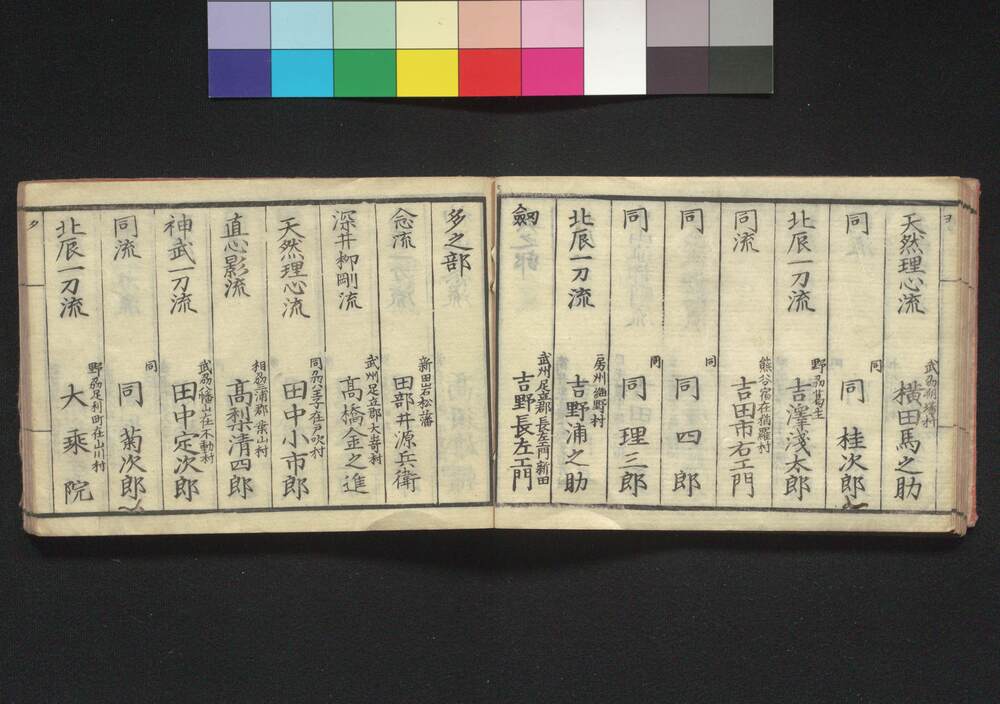 天然理心流 武刕 村 横田馬之助
同 同 同 桂次郎
北辰一刀流 野刕葛生 吉澤浅太郎
同流 熊谷宿在 村 吉田市右エ門
同 同 同 四郎
同 同 同 理三郎
北辰一刀流 房州 野村 吉野浦之助
劔 武州足立郡長左エ門新田 吉野長左エ門
多之部
念流 新田岩松藩 田部井源兵衛
深井柳剛流 武州足立郡大 村 高橋金之進
天然理心流 同刕八王子在戸吹村 田中小市郎
直心影流 相刕 浦郡葉山村 髙梨清四郎
神武一刀流 武刕八幡山在不動村 田中定次郎
同流 同 同 菊次郎
北辰一刀流 野刕足利町在山川村 大乘院
タ